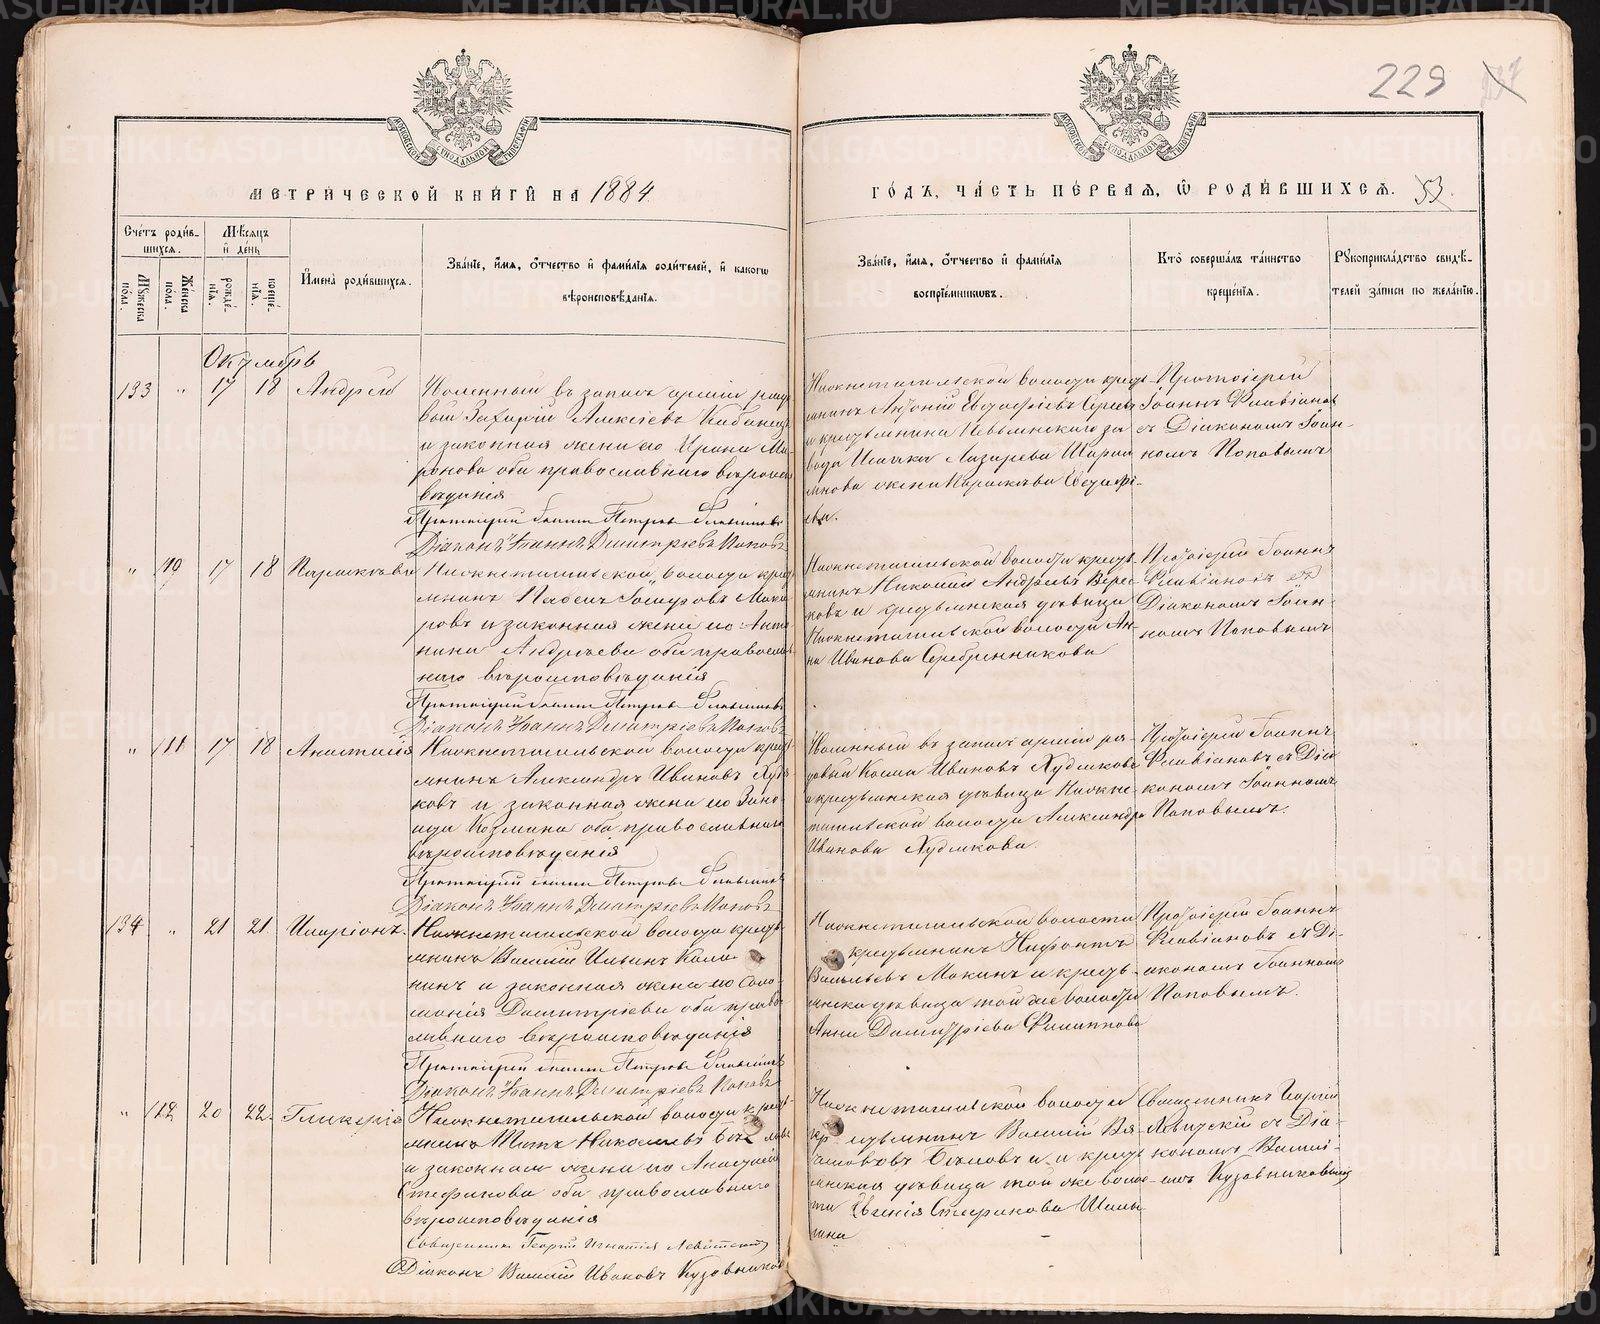 229
МЕТРИЧЕСКОЙ КНИГИ НА 1884
ГОДЪ, ЧАСТЬ ПЕРВАЯ, Ѡ РОДИВШИХСЯ. 53.
МОСКОВСКОЙ СѴНОДАЛЬНОЙ ТИПОГРАФІИ
МОСКОВСКОЙ СѴНОДАЛЬНОЙ ТИПОГРАФІИ
Счетъ родив-
шихся.
Мужеска пола.
Женска пола.
Мѣсяцъ и день
рожде-нія.
креще-нія.
Имена родившихся.
Званіе, имя, отчество и фамилія родителей, и какогѡ
вѣроисповѣданія.
Званіе, имя, отчество и фамилія
воспріемниковъ.
Кто совершалъ таинство
крещенія.
Рукоприкладство свидѣ-
телей записи по желанію.
Октябрь
133 " 17 18 Андрей
въ запасъ арміи рядо-
вый Захарій Алексіевъ
и законная жена его Ирина Ми-
ронова оба православнаго вѣроиспо-
вѣданія
Протоіерей Іоаннъ Петровъ Флавіановъ
Діаконъ Іоаннъ Димитріевъ Поповъ
Нижнетагильской волости кресть-
янинъ
и крестьянина Невьянскаго за-
вода Лазарева
жена Параскева
ева.
Протоіерей
Іоаннъ Флавіановъ
съ Діакономъ Іоан-
номъ Поповымъ
" 110 17 18 Параскева
Нижнетагильской волости кресть-
янинъ Мака-
ровъ и законная жена его Анто-
нина Андреева оба православ-
наго вѣроисповѣданія
Протоіерей Іоаннъ Петровъ Флавіановъ
Діаконъ Іоаннъ Димитріевъ Поповъ
Нижнетагильской волости кресть-
янинъ Николай Андреевъ
и крестьянская дѣвица
Нижнетагильской волости Ан-
на Иванова Серебренникова
Протоіерей Іоаннъ
Флавіановъ съ
Діакономъ Іоан-
номъ Поповымъ
" 111 17 18 Анастасія
Нижнетагильской волости кресть-
янинъ Александръ Ивановъ Худя-
ковъ и законная жена его Зино-
вида Козмина оба православнаго
вѣроисповѣданія
Протоіерей Іоаннъ Петровъ Флавіановъ
Діаконъ Іоаннъ Димитріевъ Поповъ
въ запасъ арміи ря-
довый Косма Ивановъ Худяковъ
и крестьянская дѣвица Нижне-
тагильской волости Александра
Иванова Худякова.
Протоіерей Іоаннъ
Флавіановъ съ Діа-
кономъ Іоанномъ
Поповымъ.
134 " 21 21 Иларіонъ.
Нижнетагильской волости кресть-
янинъ Василій Ильинъ Кала-
нинъ и законная жена его Соло-
монія Димитріева оба правос-
лавнаго вѣроисповѣданія
Протоіерей Іоаннъ Петровъ Флавіановъ
Діаконъ Іоаннъ Димитріевъ Поповъ
Нижнетагильской волости
крестьянинъ Нифонтъ
Васильевъ Мокинъ и кресть-
янска дѣвица той же волости
Анна Димитріева Филиппова
Протоіерей Іоаннъ
Флавіановъ съ Ді-
акономъ Іоанномъ
Поповымъ.
" 112 20 22 Гликерія
Нижнетагильской волости кресть-
янинъ Титъ Николаевъ
и законная жена его Анастасія
Стефанова оба православнаго
вѣроисповѣданія
Священникъ Георгій Игнатіевъ Левитскій
Діаконъ Василій Ивановъ Кузовниковъ
Нижнетагильской волости
крестьянинъ Василій Вя-
и кресть-
янская дѣвица той же волос-
ти Евгенія Стефанова
Священникъ Георгій
Левитскій съ Діа-
кономъ Васили-
емъ Кузовниковымъ